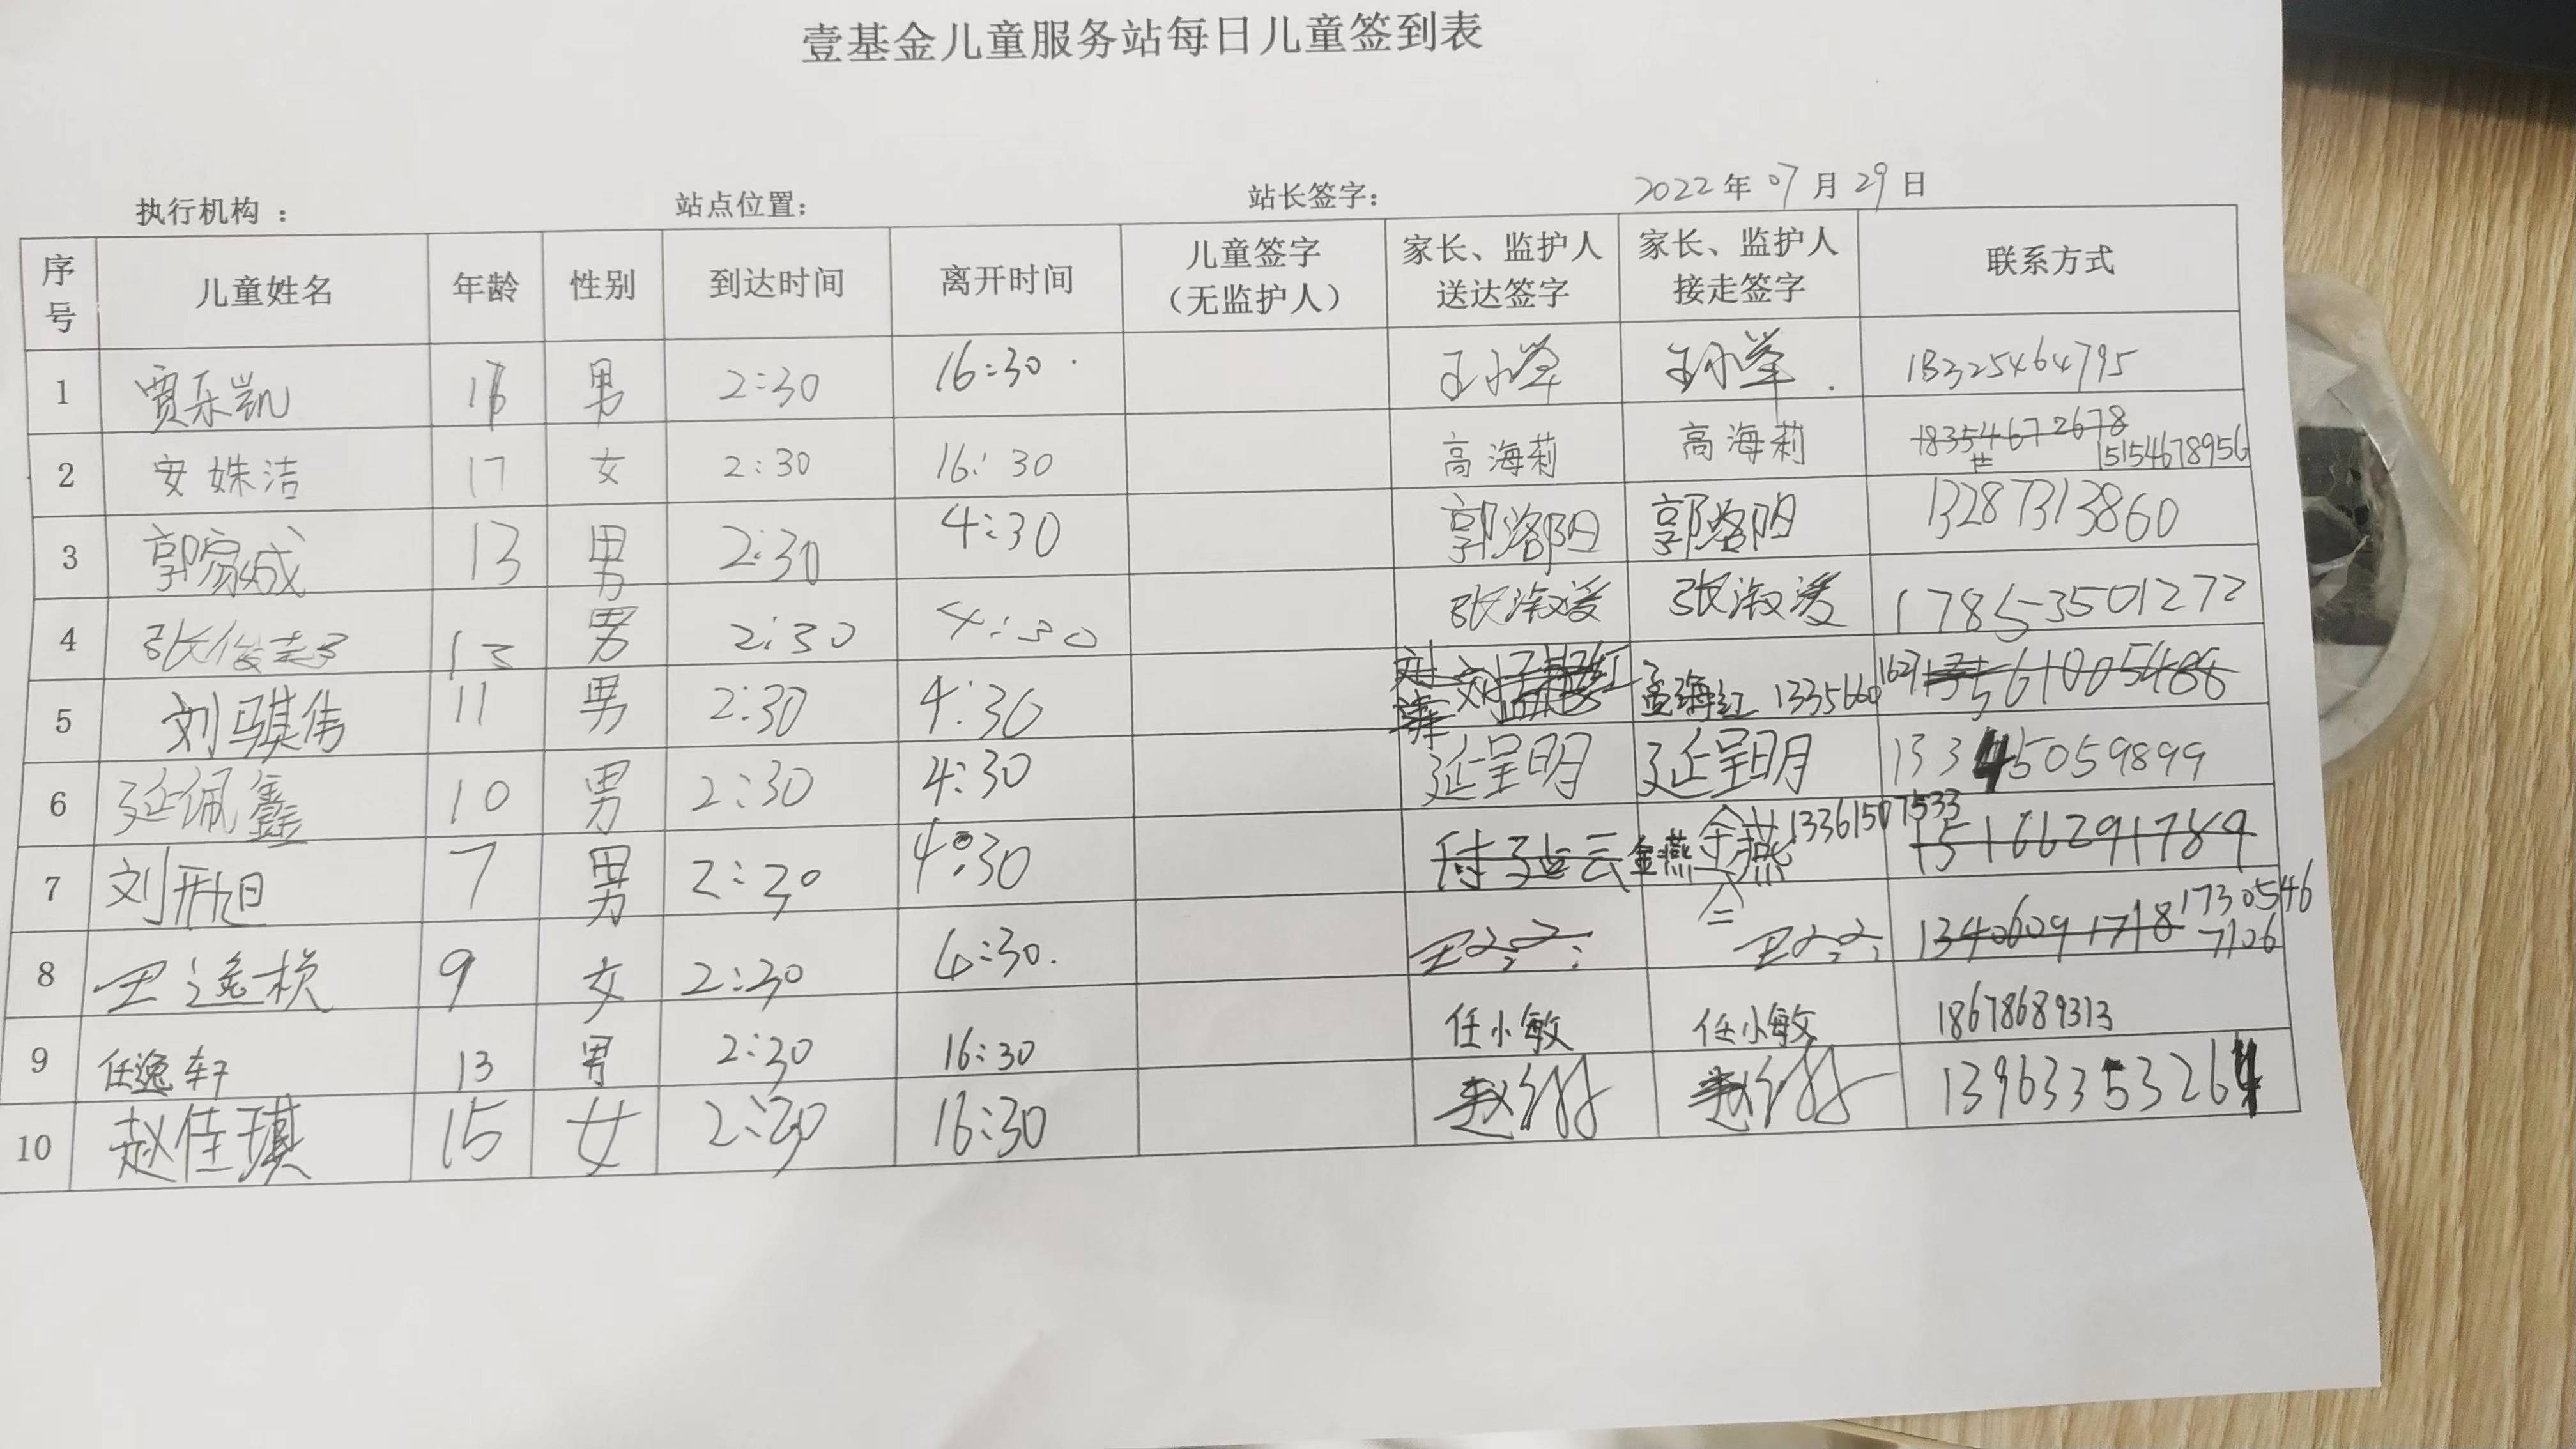 壹基金儿童服务站每日儿童签到表
执行机构： 站点位置： 站长签字： 2022年07月29日
序号 儿童姓名 年龄 性别 到达时间 离开时间 儿童签字（无监护人） 家长、监护人送达签字 家长、监护人接走签字 联系方式
1 贾乐凯 男 2:30 16:30 18325464795
2 安姝洁 17 女 2:30 16:30 高海莉 高海莉 18354672678 15154678956
3 郭家成 13 男 2:30 4:30 郭洛阳 郭洛阳 13287313860
4 张俊 13 男 2:30 4:30 张淑 张淑 17853501272
5 刘骐伟 11 男 2:30 4:30 孟海红 1335660 1629
6 延佩鑫 10 男 2:30 4:30 延呈明 延呈明 13345059899
7 刘 7 男 2:30 4:30 金燕 金燕 13361507533 15166291789
8 王逸 9 女 2:30 4:30 王 王 13406091718 17305467126
9 任逸轩 13 男 2:30 16:30 任小敏 任小敏 18678689313
10 赵佳琪 15 女 2:30 16:30 赵 赵 13963353264